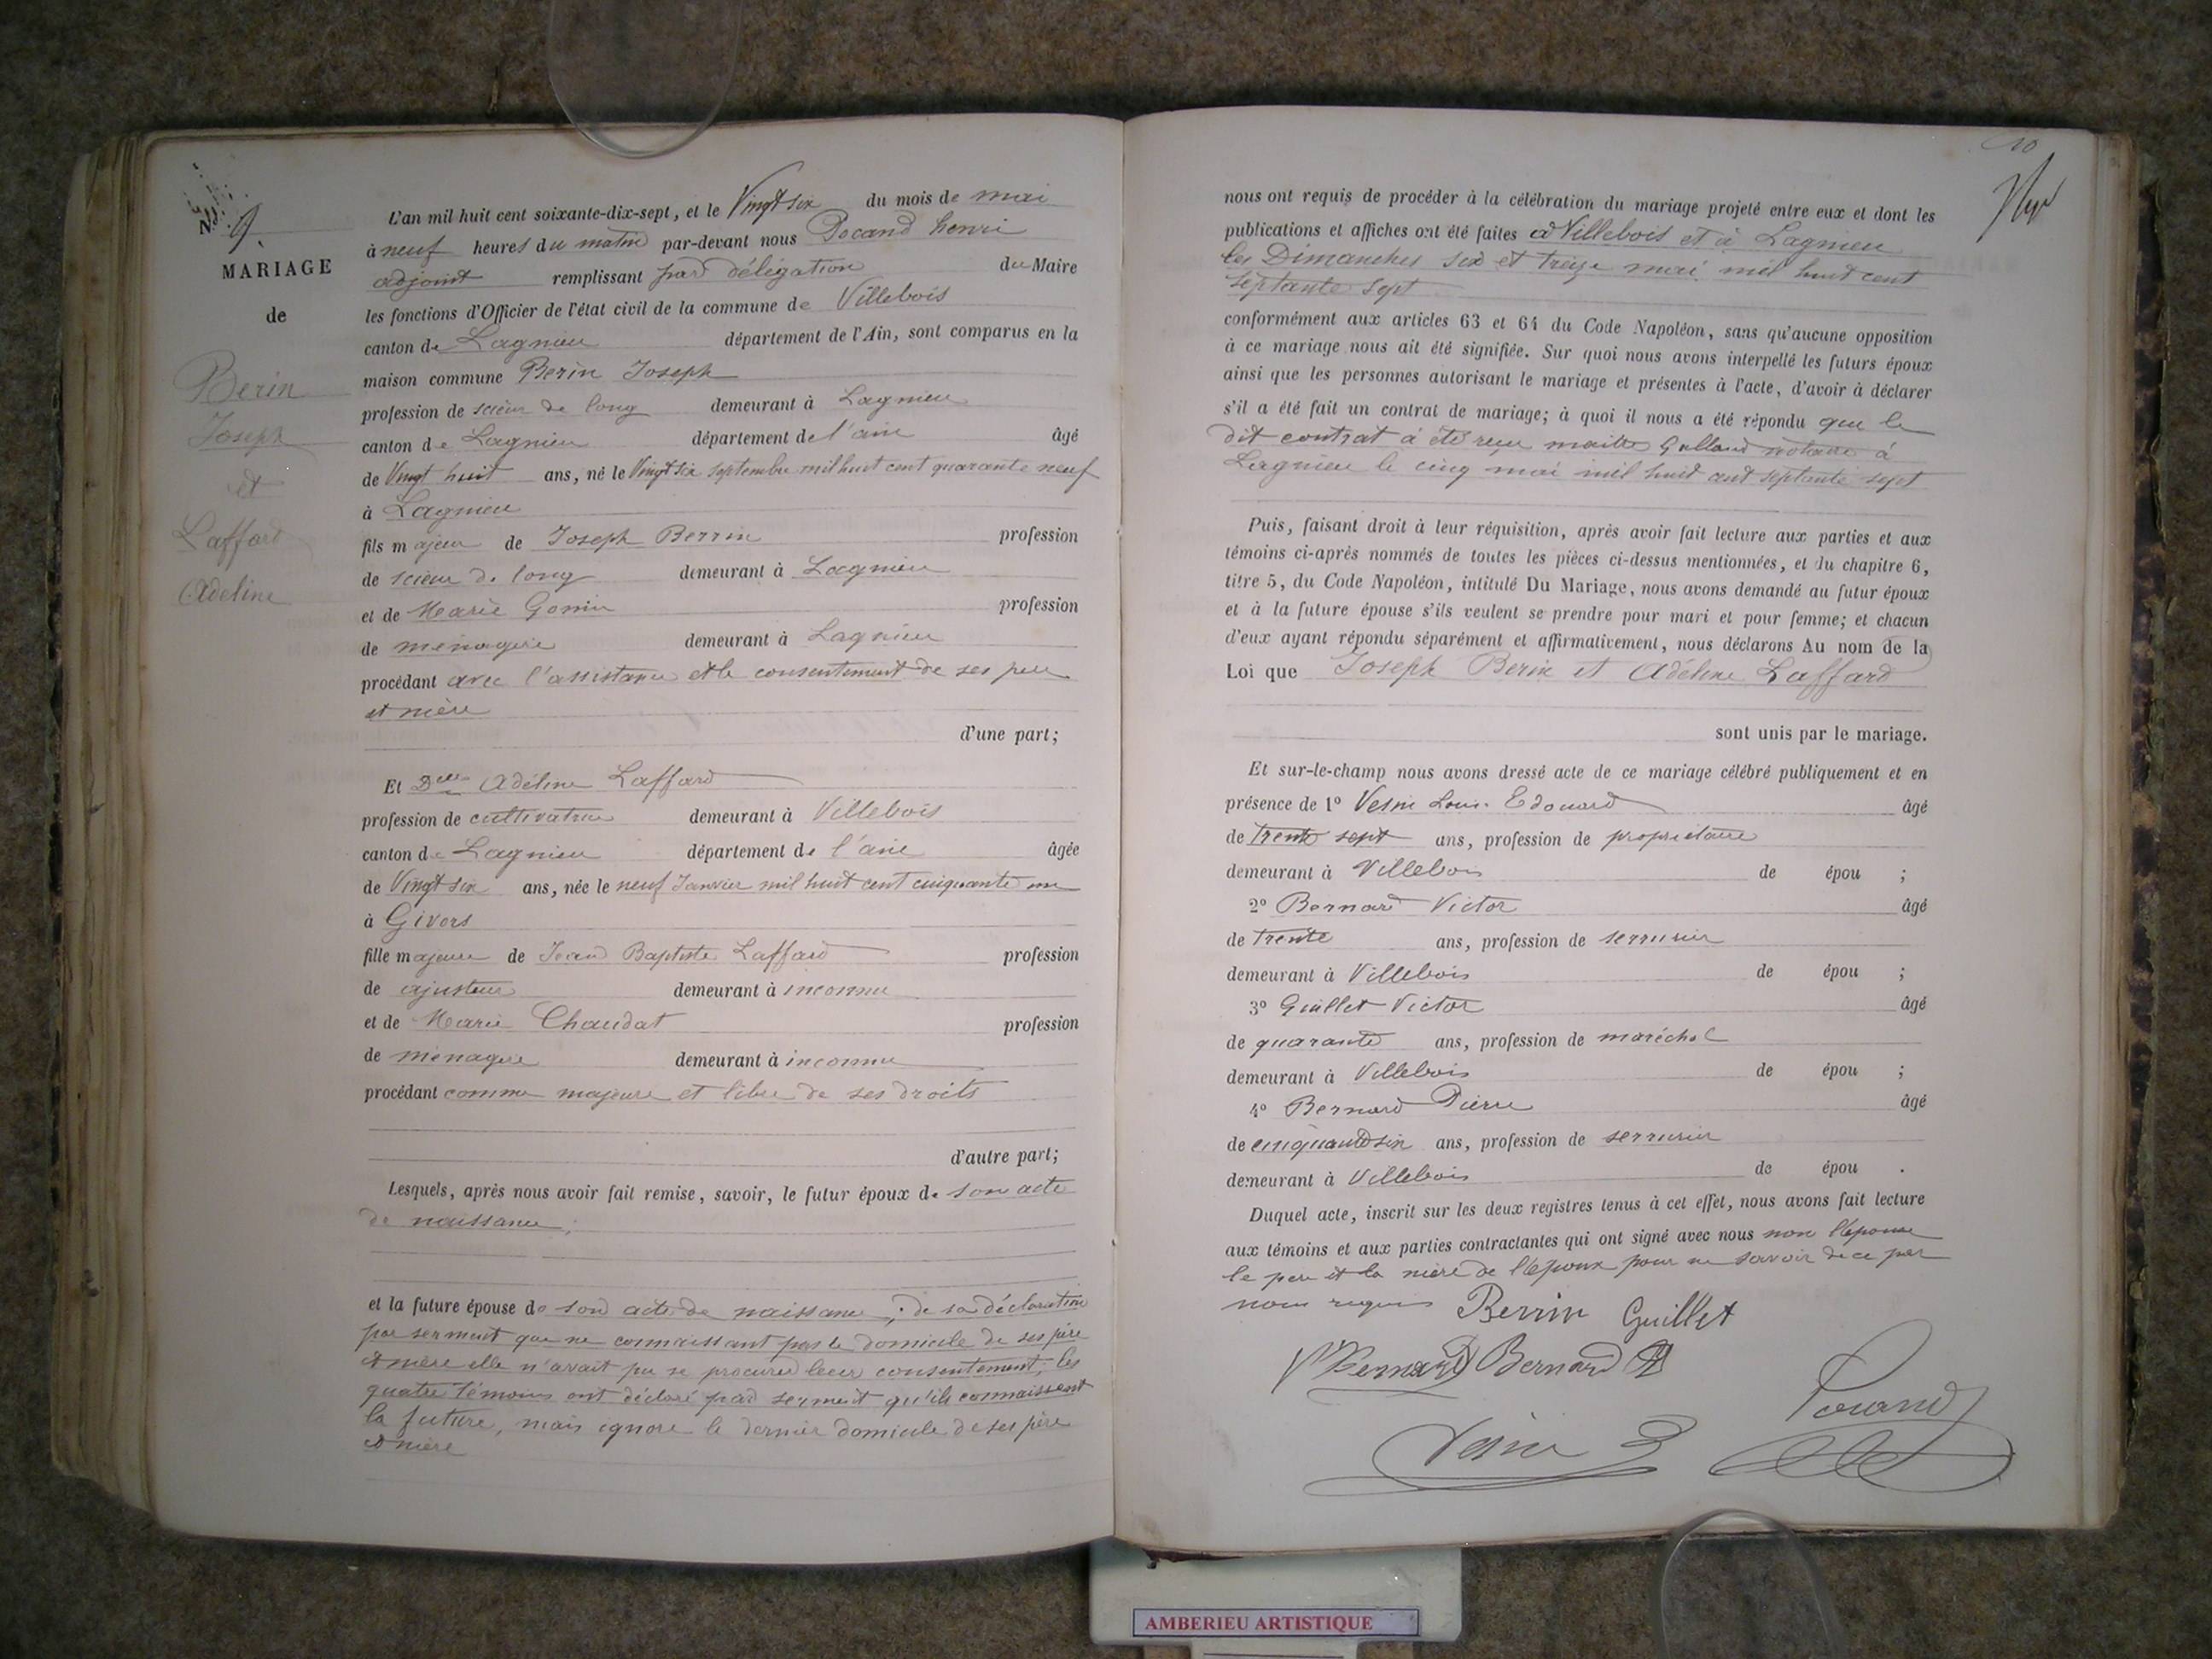 N° 9.
MARIAGE
de
Berin
Joseph
et
Laffard
Adeline
L'an mil huit cent soixante-dix-sept, et le Vingt six du mois de mai
à neuf heures du matin par-devant nous Pocand henri
adjoint remplissant par délégation du Maire
les fonctions d'Officier de l'état civil de la commune de Villebois
canton de Lagnieu département de l'Ain, sont comparus en la
maison commune Berin Joseph
profession de scieur de long demeurant à Lagnieu
canton de Lagnieu département de l'ain âgé
de Vingt huit ans, né le Vingt six septembre mil huit cent quarante neuf
à Lagnieu
fils majeur de Joseph Berrin profession
de scieur de long demeurant à Lagnieu
et de Marie Gonin profession
de ménagère demeurant à Lagnieu
procédant avec l'assistance et le consentement de ses père
et mère
d'une part;
Et Delle Adéline Laffard
profession de cultivatrice demeurant à Villebois
canton de Lagnieu département de l'ain âgée
de Vingt six ans, née le neuf Janvier mil huit cent cinquante un
à Givors
fille majeure de Jean Baptiste Laffard profession
de ajusteur demeurant à inconnu
et de Marie Chaudat profession
de ménagère demeurant à inconnu
procédant comme majeure et libre de ses droits
d'autre part;
Lesquels, après nous avoir fait remise, savoir, le futur époux de son acte
de naissance;
et la future épouse de son acte de naissance; de sa déclaration
par serment que ne connaissant pas le domicile de ses père
et mère elle n'avait pu se procurer leur consentement; les
quatre témoins ont déclaré par serment qu'ils connaissent
la future, mais ignore le dernier domicile de ses père
et mère
10
nous ont requis de procéder à la célébration du mariage projeté entre eux et dont les
publications et affiches ont été faites à Villebois et à Lagnieu
les Dimanches six et treize mai mil huit cent
septante sept
conformément aux articles 63 et 64 du Code Napoléon, sans qu'aucune opposition
à ce mariage nous ait été signifiée. Sur quoi nous avons interpellé les futurs époux
ainsi que les personnes autorisant le mariage et présentes à l'acte, d'avoir à déclarer
s'il a été fait un contrat de mariage; à quoi il nous a été répondu que le
dit contrat à été reçu maitre Galland notaire à
Lagnieu le cinq mai mil huit cent septante sept
Puis, faisant droit à leur réquisition, après avoir fait lecture aux parties et aux
témoins ci-après nommés de toutes les pièces ci-dessus mentionnées, et du chapitre 6,
titre 5, du Code Napoléon, intitulé Du Mariage, nous avons demandé au futur époux
et à la future épouse s'ils veulent se prendre pour mari et pour femme; et chacun
d'eux ayant répondu séparément et affirmativement, nous déclarons Au nom de la
Loi que Joseph Berin et Adéline Laffard
sont unis par le mariage.
Et sur-le-champ nous avons dressé acte de ce mariage célébré publiquement et en
présence de 1° Vesin Louis Edouard âgé
de trente sept ans, profession de propriétaire
demeurant à Villebois de épou ;
2° Bernard Victor âgé
de trente ans, profession de serrurier
demeurant à Villebois de épou ;
3° Guillet Victor âgé
de quarante ans, profession de maréchal
demeurant à Villebois de épou ;
4° Bernard Pierre âgé
de cinquante six ans, profession de serrurier
demeurant à Villebois de épou .
Duquel acte, inscrit sur les deux registres tenus à cet effet, nous avons fait lecture
aux témoins et aux parties contractantes qui ont signé avec nous non l'épouse
le père et la mère de l'époux pour ne savoir de ce par
nous requis Berrin Guillet
V Bernard Bernard P
Vesin E Pocand
AMBERIEU ARTISTIQUE